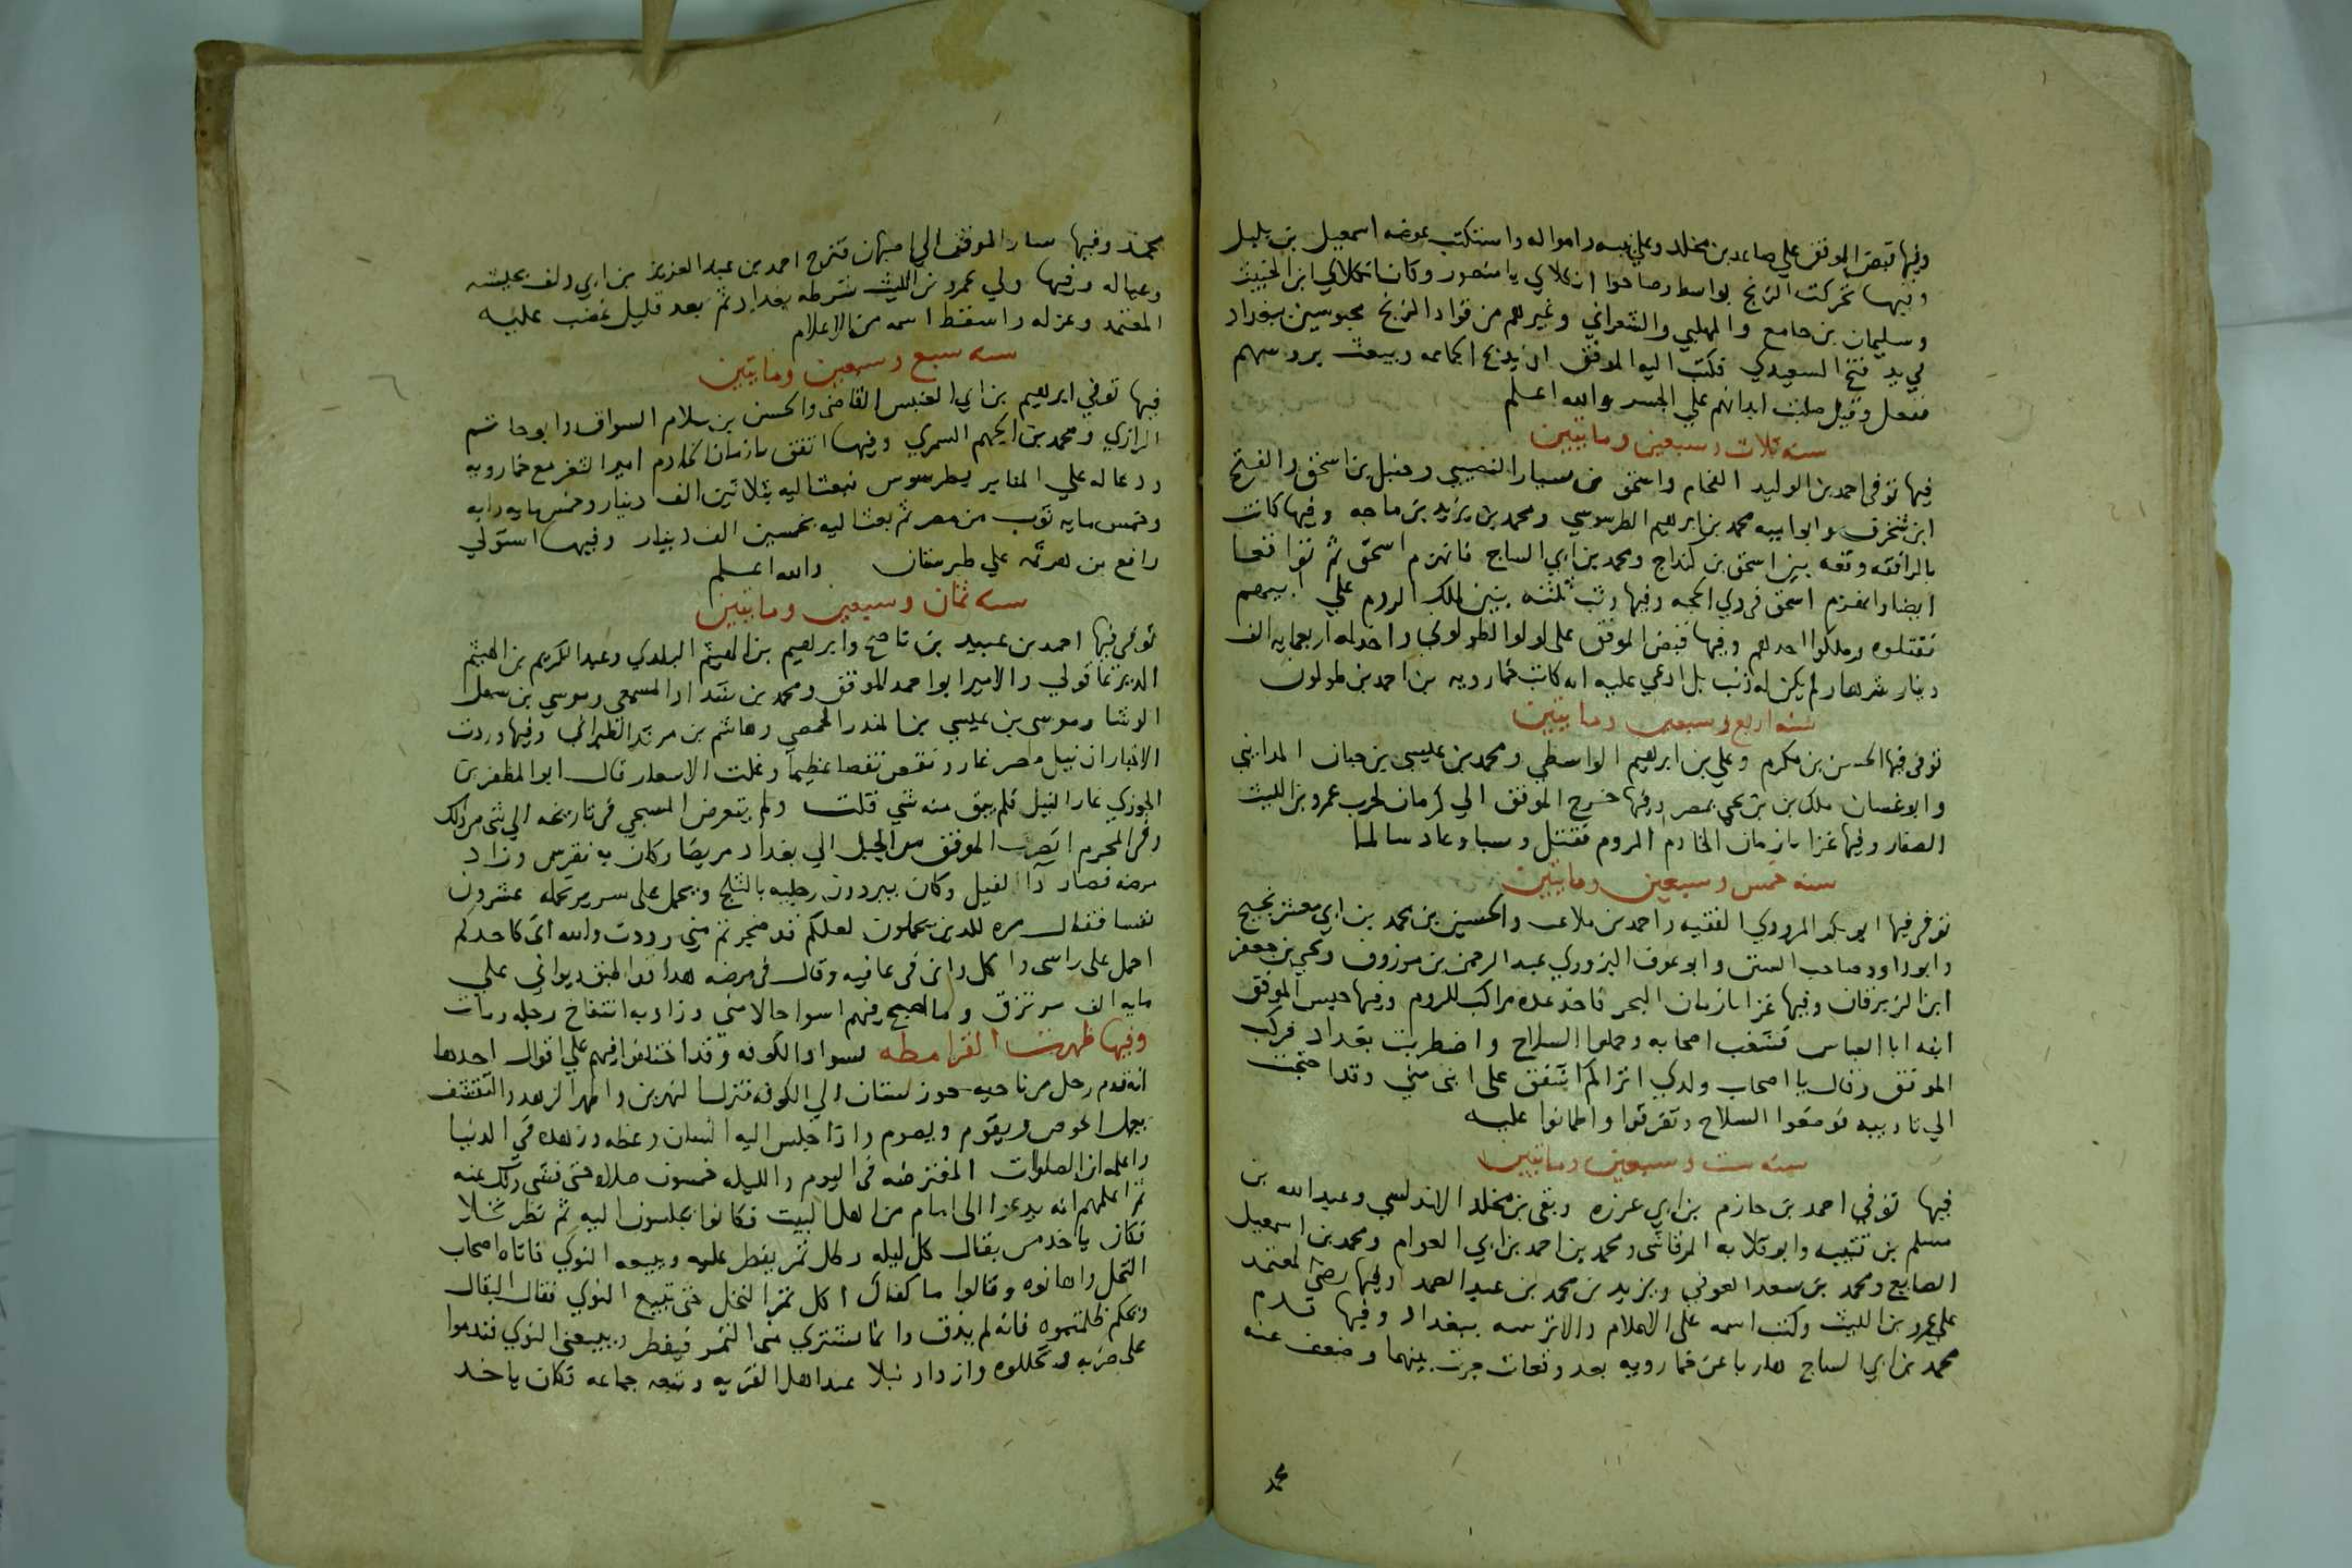 وفيها قبض الموفق علي صاعد بن مخلد وعلي بنيه وامواله واستكتب عوضه اسمعيل بن بلبل
وفيها تحركت الزنج بواسط وصاحوا انكلاي يا منصور وكان انكلاي ابن الخبيث
وسليمان بن جامع والمهلبي والشعراني وغيرهم من قواد الزنج محبوسين ببغداد
في يد فتح السعيدي فكتب اليه الموفق ان يذبح الجماعه ويبعث بروسهم
ففعل وقيل صلبت ابدانهم علي الجسر والله اعلم
سنه ثلاث وسبعين ومايتين
فيها توفي احمد بن الوليد الفحام واسحق بن سيار النصيبي وحنبل بن اسحق والفتح
ابن شخرف وابو اميه محمد بن ابرهيم الطرسوسي ومحمد بن يزيد بن ماجه وفيها كانت
بالرافقه وقعه بين اسحق بن كنداج ومحمد بن ابي الساج فانهزم اسحق ثم تواقعا
ايضا وانهزم اسحق في ذي الحجه وفيها وثب ثلثه بنين لملك الروم علي ابيهم
فقتلوه وملكوا احدهم وفيها قبض الموفق على لولو الطولوني واخذ له اربعمايه الف
دينار ولم يكن له ذنب بل ادعي عليه انه كاتب خمارويه بن احمد بن طولون
سنه اربع وسبعين ومايتين
توفي فيها الحسن بن مكرم وعلي بن ابرهيم الواسطي ومحمد بن عيسى بن حبان المدايني
وابو غسان ملك بن يحيى بمصر وفيها خرج الموفق الي كرمان لحرب عمرو بن الليث
الصفار وفيها غزا يازمان الخادم الروم فقتل وسبا وعاد سالما
سنه خمس وسبعين ومايتين
توفي فيها ابو بكر المروذي الفقيه واحمد بن ملاعب والحسين بن محمد بن ابي معشر نجيح
وابو داود صاحب السنن وابو عوف البزوري عبد الرحمن بن مرزوق ويحيى بن جعفر
ابن الزبرقان وفيها غزا يازمان البحر فاخذ عده مراكب للروم وفيها حبس الموفق
ابنه ابا العباس فشغب اصحابه وحملوا السلاح واضطربت بغداد فركب
الموفق وقال يا اصحاب ولدي اتراكم اشفق على ابني مني وقد احتجت
الي تاديبه فوضعوا السلاح وتفرقوا واطمانوا عليه
سنه ست وسبعين ومايتين
فيها توفي احمد بن حازم بن ابي غرزه وبقى بن مخلد الاندلسي وعبد الله بن
مسلم بن قتيبه وابو قلابه الرقاشى ومحمد بن احمد بن ابي العوام ومحمد بن اسمعيل
الصايغ ومحمد بن سعد العوفي ويزيد بن محمد بن عبد الصمد وفيها رضى المعتمد
علي عمرو بن الليث وكتب اسمه على الاعلام والاترسه ببغداد وفيها قدم
محمد بن ابي الساج هاربا عن خمارويه بعد وقعات جرت بينهما وضعف عنه
محمد
محمد وفيها سار الموفق الي اصبهان فتنزح احمد بن عبد العزيز بن ابي دلف بجيشه
وعياله وفيها ولي عمرو بن الليث شرطه بغداد ثم بعد قليل غضب عليه
المعتمد وعزله واسقط اسمه من الاعلام
سنه سبع وسبعين ومايتين
فيها توفي ابرهيم بن ابي العنبس القاضى والحسن بن سلام السواق وابو حاتم
الرازي ومحمد بن الجهم السمري وفيها اتفق يازمان الخادم امير الثغر مع خمارويه
ودعا له علي المنابر بطرسوس فبعث اليه بثلاثين الف دينار وخمس مايه دابه
وخمس مايه ثوب من مصر ثم بعث اليه بخمسين الف دينار وفيها استولي
رافع بن هرثمه علي طبرستان والله اعلم
سنه ثمان وسبعين ومايتين
توفى فيها احمد بن عبيد بن ناصح وابرهيم بن الهيثم البلدي وعبد الكريم بن الهيثم
الديرعاقولي والامير ابو احمد الموفق ومحمد بن شداد المسمعي وموسي بن سهل
الوشا وموسى بن عيسي بن المنذر الحمصي وهاشم بن مرثد الطبراني وفيها وردت
الاخبار ان نيل مصر غار ونقص نقصا عظيما وغلت الاسعار قال ابو المظفر بن
الجوزي غار النيل فلم يبق منه شي قلت ولم يتعرض المسبحي في تاريخه الي شي من ذلك
وفى المحرم انصرف الموفق من الجبل الي بغداد مريضا وكان به نقرس وزاد
مرضه فصار دا الفيل وكان يبردون رجليه بالثلج ويحمل على سرير تحمله عشرون
نفسا فقال مره للذين يحملون لعلكم قد ضجرتم مني وددت والله اني كاحدكم
احمل على راسى واكل واني في عافيه وقال في مرضه هذا قد اطبق ديواني علي
مايه الف مرتزق وما اصبح فيهم اسوا حالا مني وزاد به انتفاخ رجله ومات
وفيها ظهرت القرامطه بسواد الكوفه وقد اختلفوا فيهم علي اقوال احدها
انه قدم رجل من ناحيه خوزستان الي الكوفه فنزل النهرين واظهر الزهد والتقشف
يعمل الخوص ويقوم ويصوم واذا جلس اليه انسان وعظه وزهده في الدنيا
واعلمه ان الصلوات المفترضه في اليوم والليله خمسون صلاه حتى فشى ذلك عنه
ثم اعلمهم انه يدعوا الى امام من اهل البيت فكانوا يجلسون اليه ثم نظر نخلا
فكان ياخذ من بقال كل ليله رطل تمر يفطر عليه ويبيعه النوي فاتاه اصحاب
النخل واهانوه وقالوا ما كفاك اكل تمر النخل حتى تبيع النوي فقال البقال
ويحكم ظلمتموه فانه لم يذق وانما يشتري مني التمر فيفطر ويبيعني النوي فندموا
على ضربه وتحللوه وازداد نبلا عند اهل القريه وتبعه جماعه فكان ياخذ